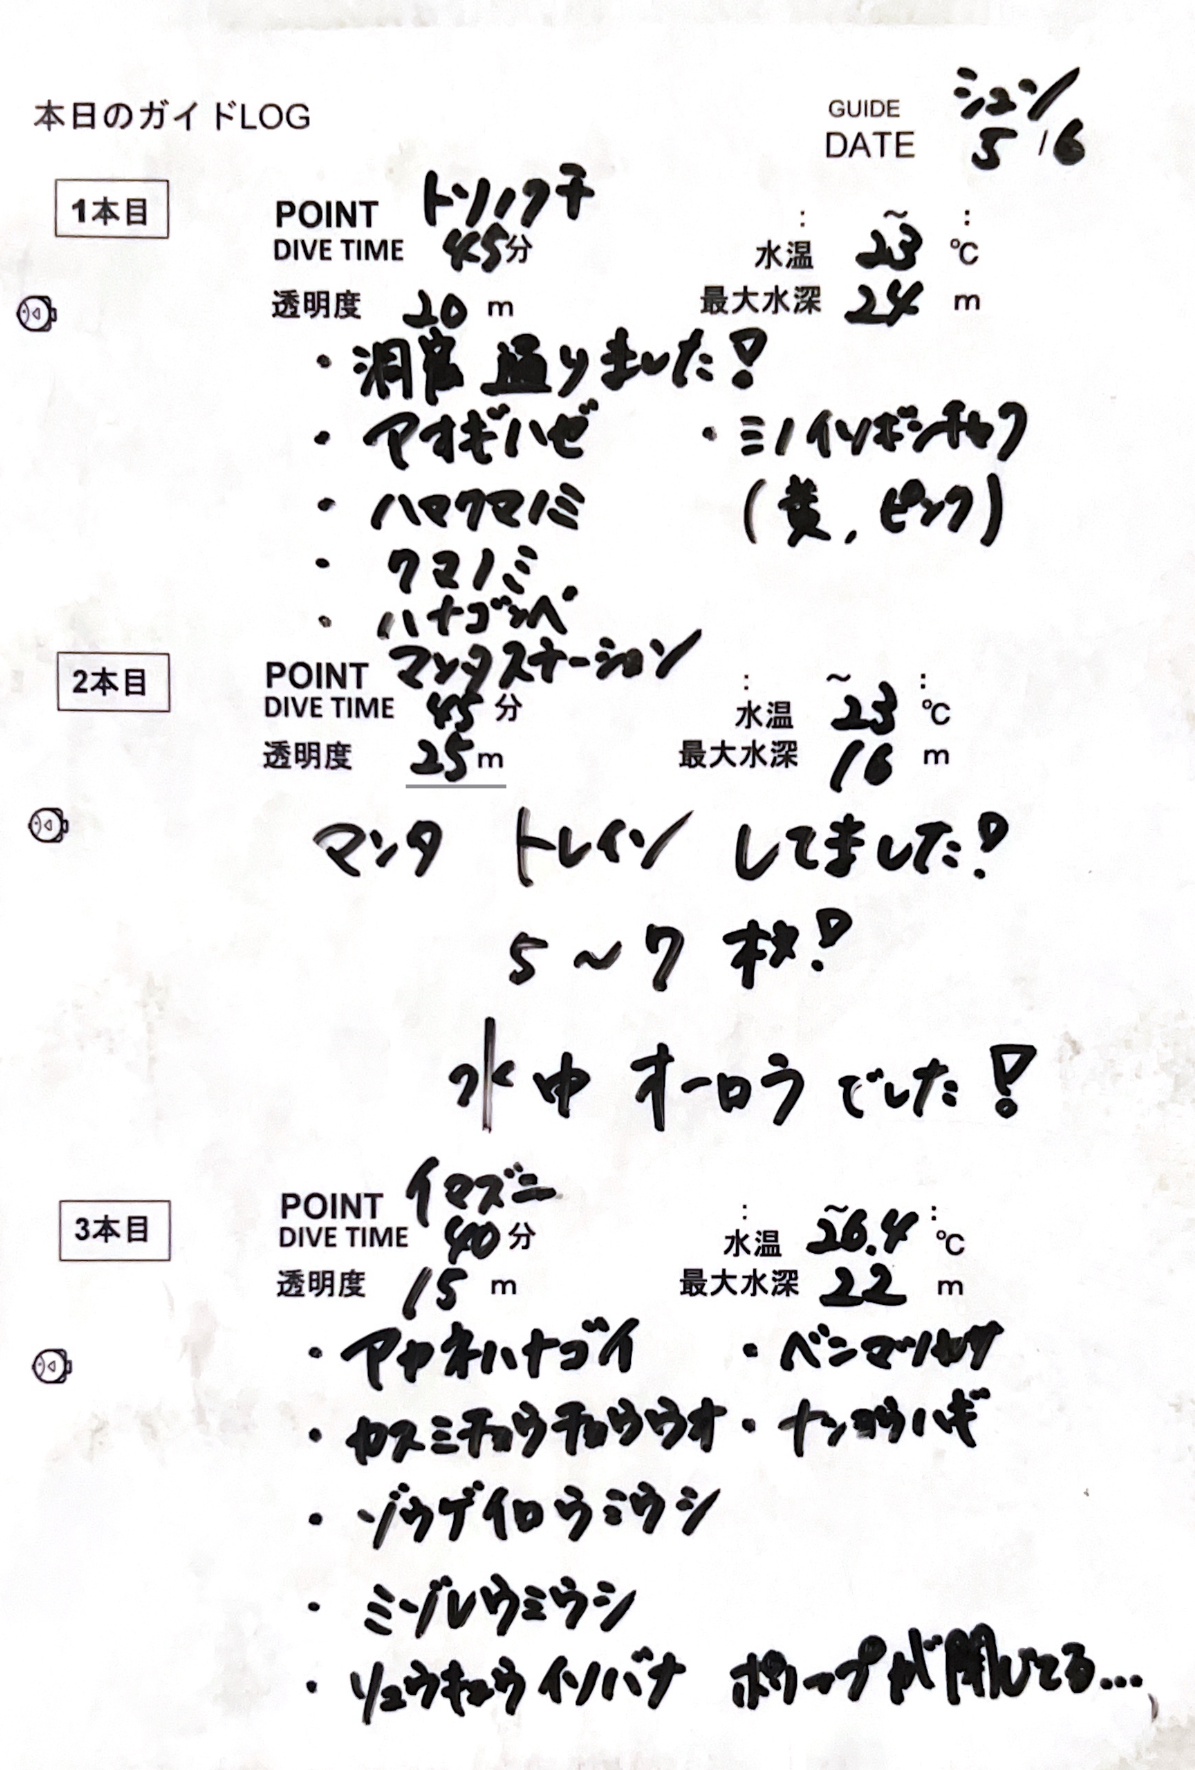 本日のガイドLOG
GUIDE シュン
DATE 5/6
1本目
POINT トソノクチ : ～ :
DIVE TIME 45分 水温 23 ℃
透明度 20 m 最大水深 24 m
・洞窟 通りました!
・アオギハゼ ・ミノイソギンチャク
・ハマクマノミ (黄、ピンク)
・クマノミ
・ハナゴンベ
2本目
POINT マンタステーション : ～ :
DIVE TIME 45 分 水温 23 ℃
透明度 25m 最大水深 16 m
マンタ トレイン してました!
5～7 枚!
水中 オーロラ でした!
3本目
POINT イマズニ : ～ :
DIVE TIME 40 分 水温 26.4 ℃
透明度 15 m 最大水深 22 m
・アカネハナゴイ ・ベンマツカサ
・カスミチョウチョウウオ ・ナンヨウハギ
・ゾウゲイロウミウシ
・ミゾレウミウシ
・リュウキュウイソバナ ポリープが閉じてる...